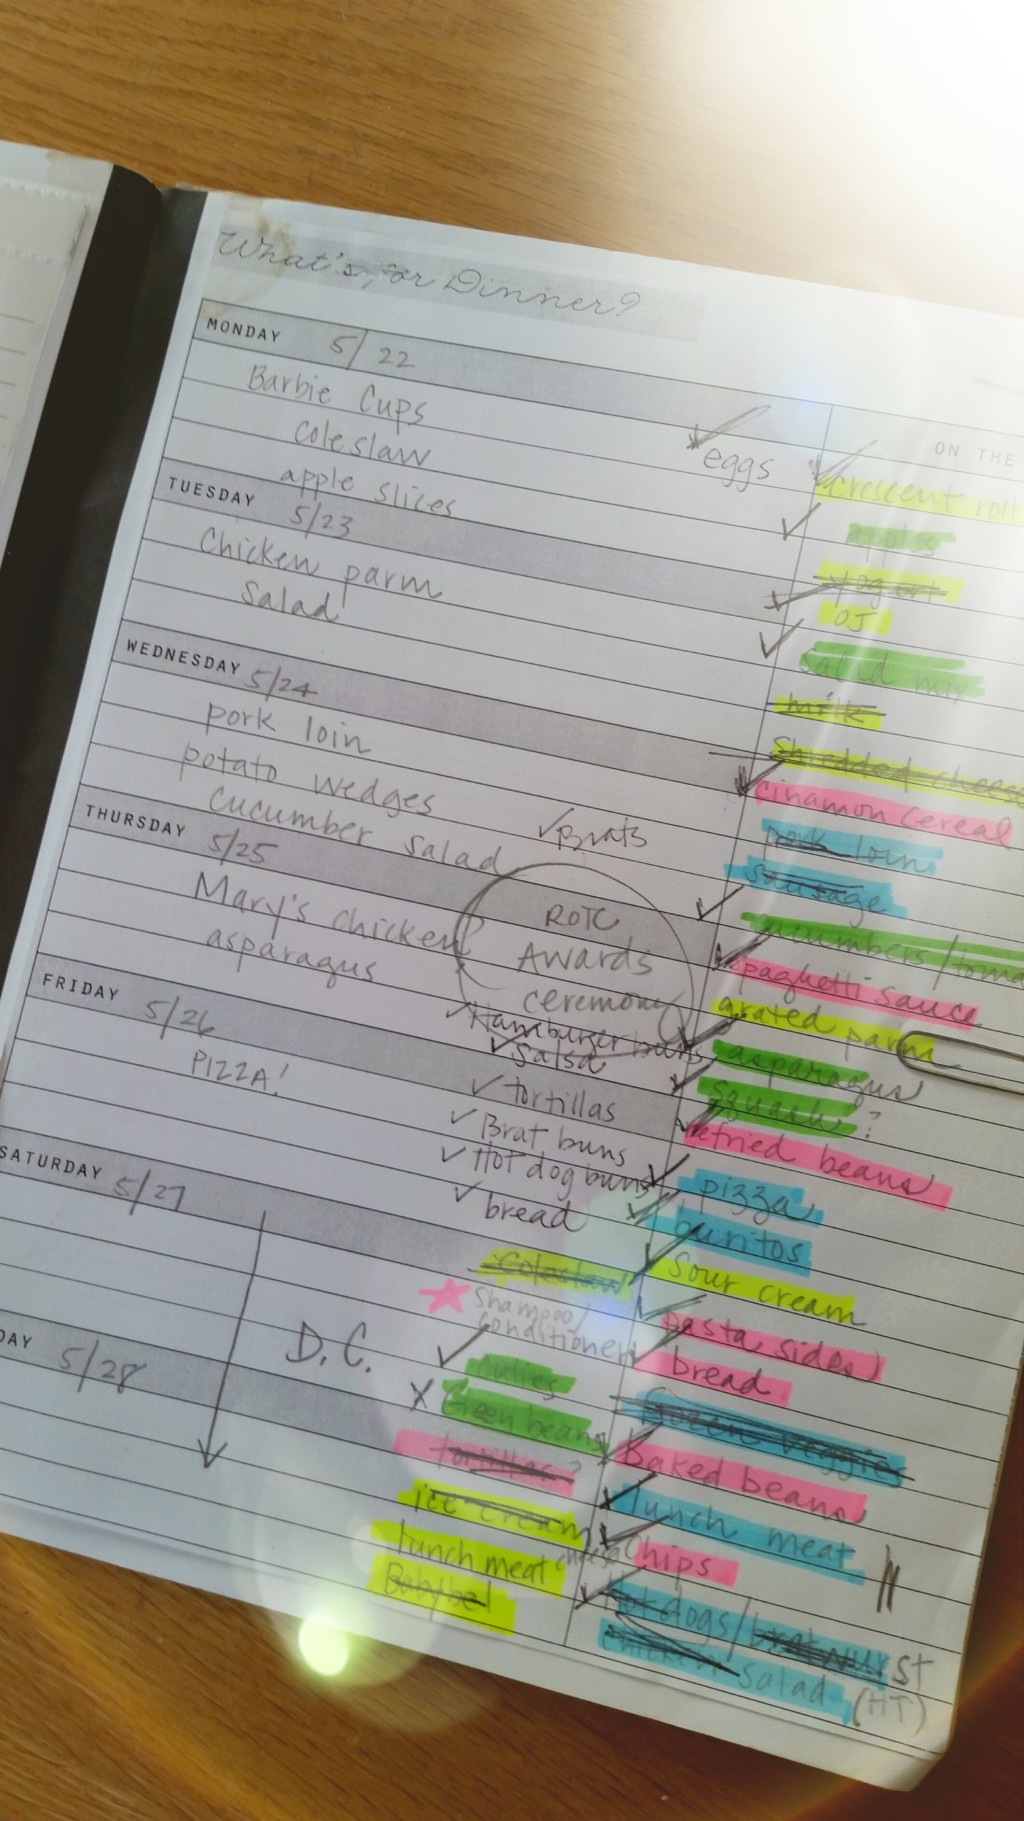 What's for Dinner?
MONDAY 5/22
Barbie Cups
coleslaw
apple slices
TUESDAY 5/23
Chicken parm
Salad
WEDNESDAY 5/24
pork loin
potato wedges
cucumber salad
THURSDAY 5/25
Mary's chicken
asparagus
FRIDAY 5/26
PIZZA!
SATURDAY 5/27
D.C.
DAY 5/28
eggs
Brats
ROTC
Awards
ceremony
Hamburger buns
Salsa
tortillas
Brat buns
Hot dog buns
bread
Coleslaw
Shampoo/
Conditioner
Green beans
tortillas?
ice cream
lunch meat
cheese
Babybel
ON THE
crescent roll
apples
yogurt
OJ
salad mix
milk
Shredded cheese
cinamon cereal
pork loin
Sausage
cucumbers/toma
spaghetti sauce
grated parm
asparagus
Squash?
refried beans
pizza
buritos
Sour cream
pasta sides
bread
frozen veggies
Baked beans
lunch meat
Chips
Hot dogs/bratwurst
chicken salad (HT)